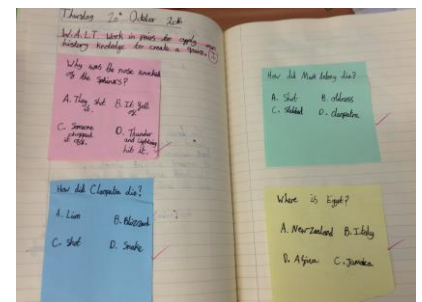 Thursday 20th October
W.A.L.T. work in pairs to apply our
history knowledge to create a
Why was the nose
of the sphinxs?
A. They shot it.
B. It fell
C. Someone chopped it off.
D. Thunder and lighting hit it.
How did Cleopatra die?
A. Lion
B. Blizzard
C. shot
D. Snake
How did Mark Antony die?
A. Shot
B. oldness
C. Stabbed
D. cleopatra
Where is Egypt?
A. New Zealand B. Italy
D. Africa C. Jamaica